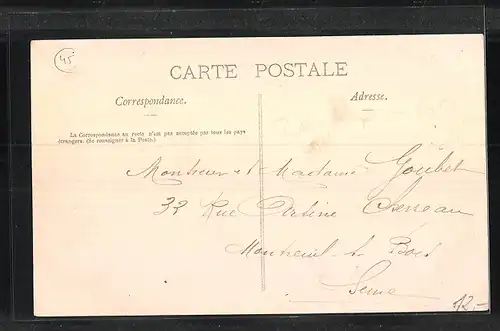 45
CARTE POSTALE
Correspondance.
Adresse.
La Correspondance au recto n'est pas acceptée par tous les pays
étrangers. (Se renseigner à la Poste.)
Monsieur et Madame Goubet
32 Rue Arsène
Montreuil s Bois
Seine
12,-